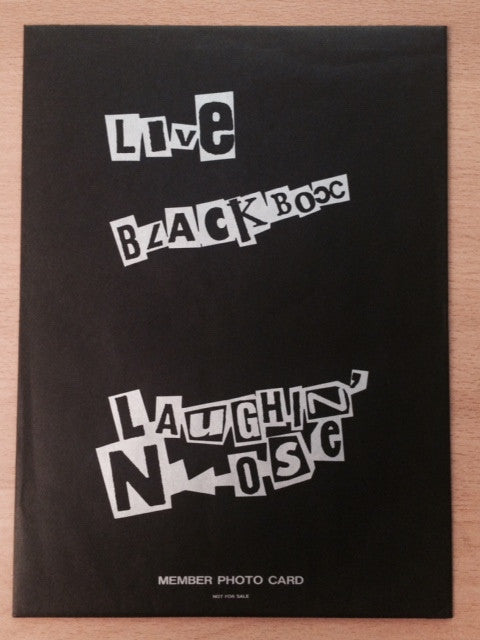 LIve
BLACK BOX
LAUGHIN'
NOSe
MEMBER PHOTO CARD
NOT FOR SALE